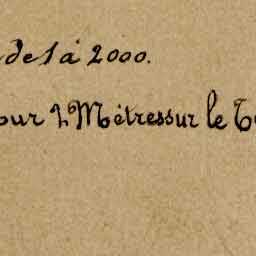 de 1 à 2000.
our 2 Mètres sur le